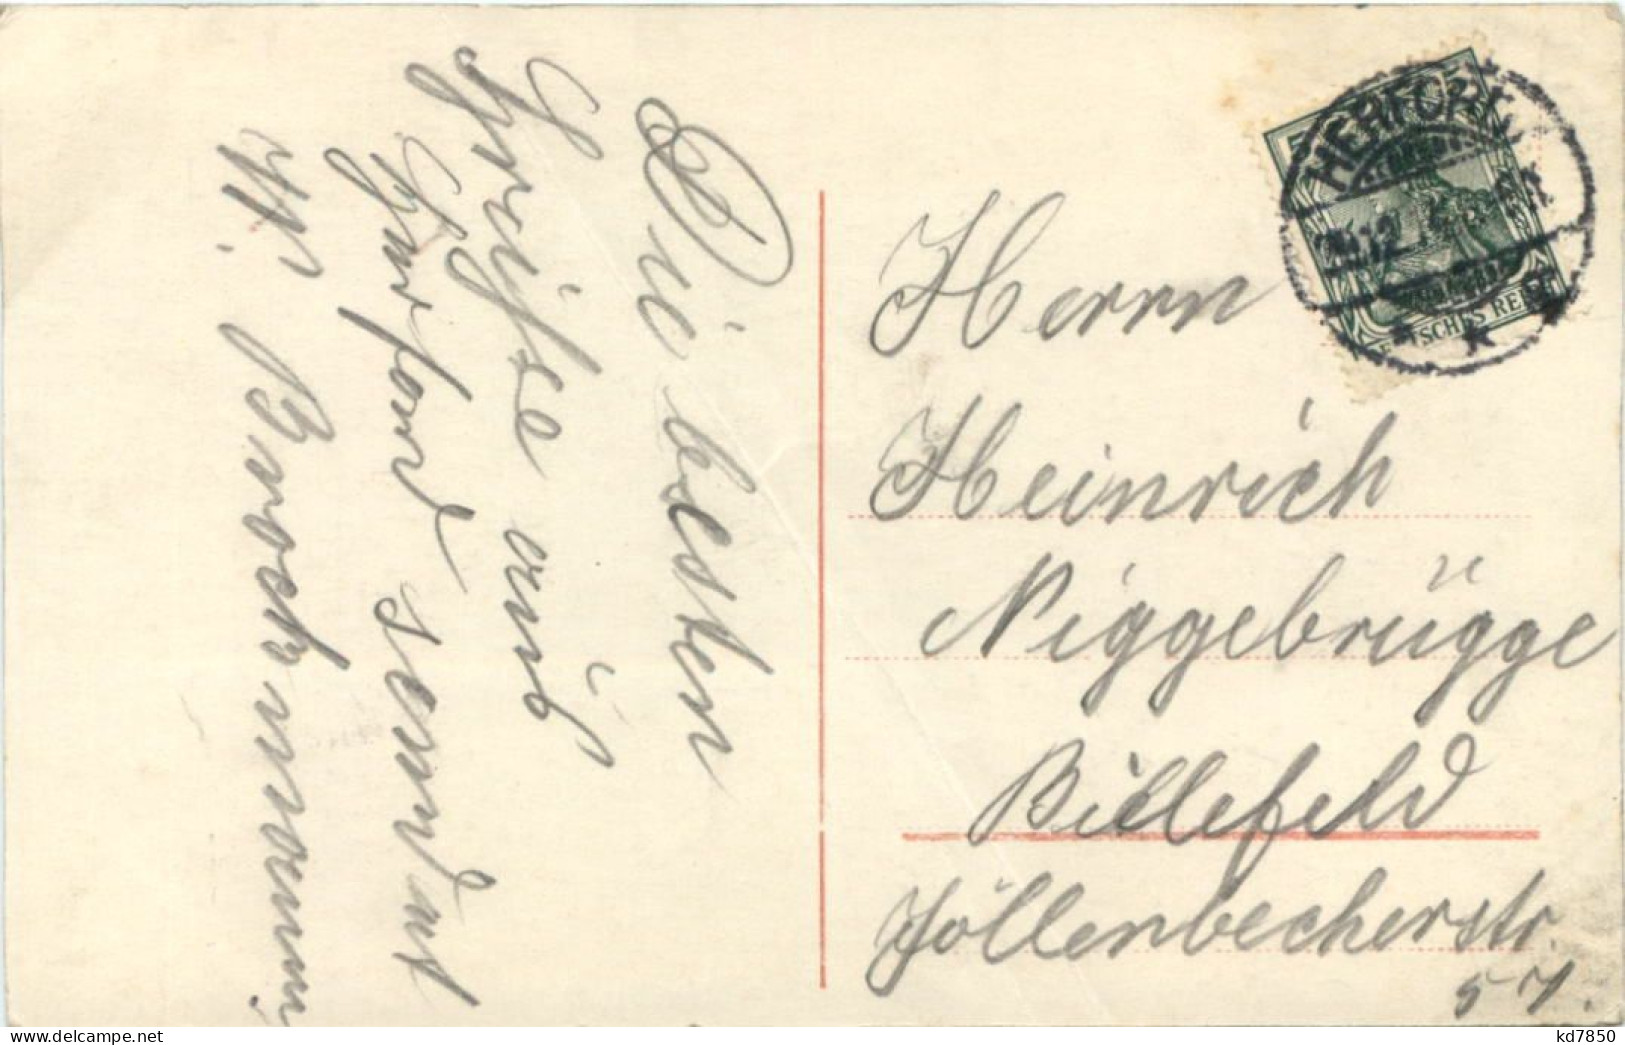 Die besten
Grüße aus
Herford sendet
W. Brockmann
HERFORD
DEUTSCHES REICH
Herrn
Heinrich
Niggebrügge
Bielefeld
Jöllenbecherstr.
57.
kd7850